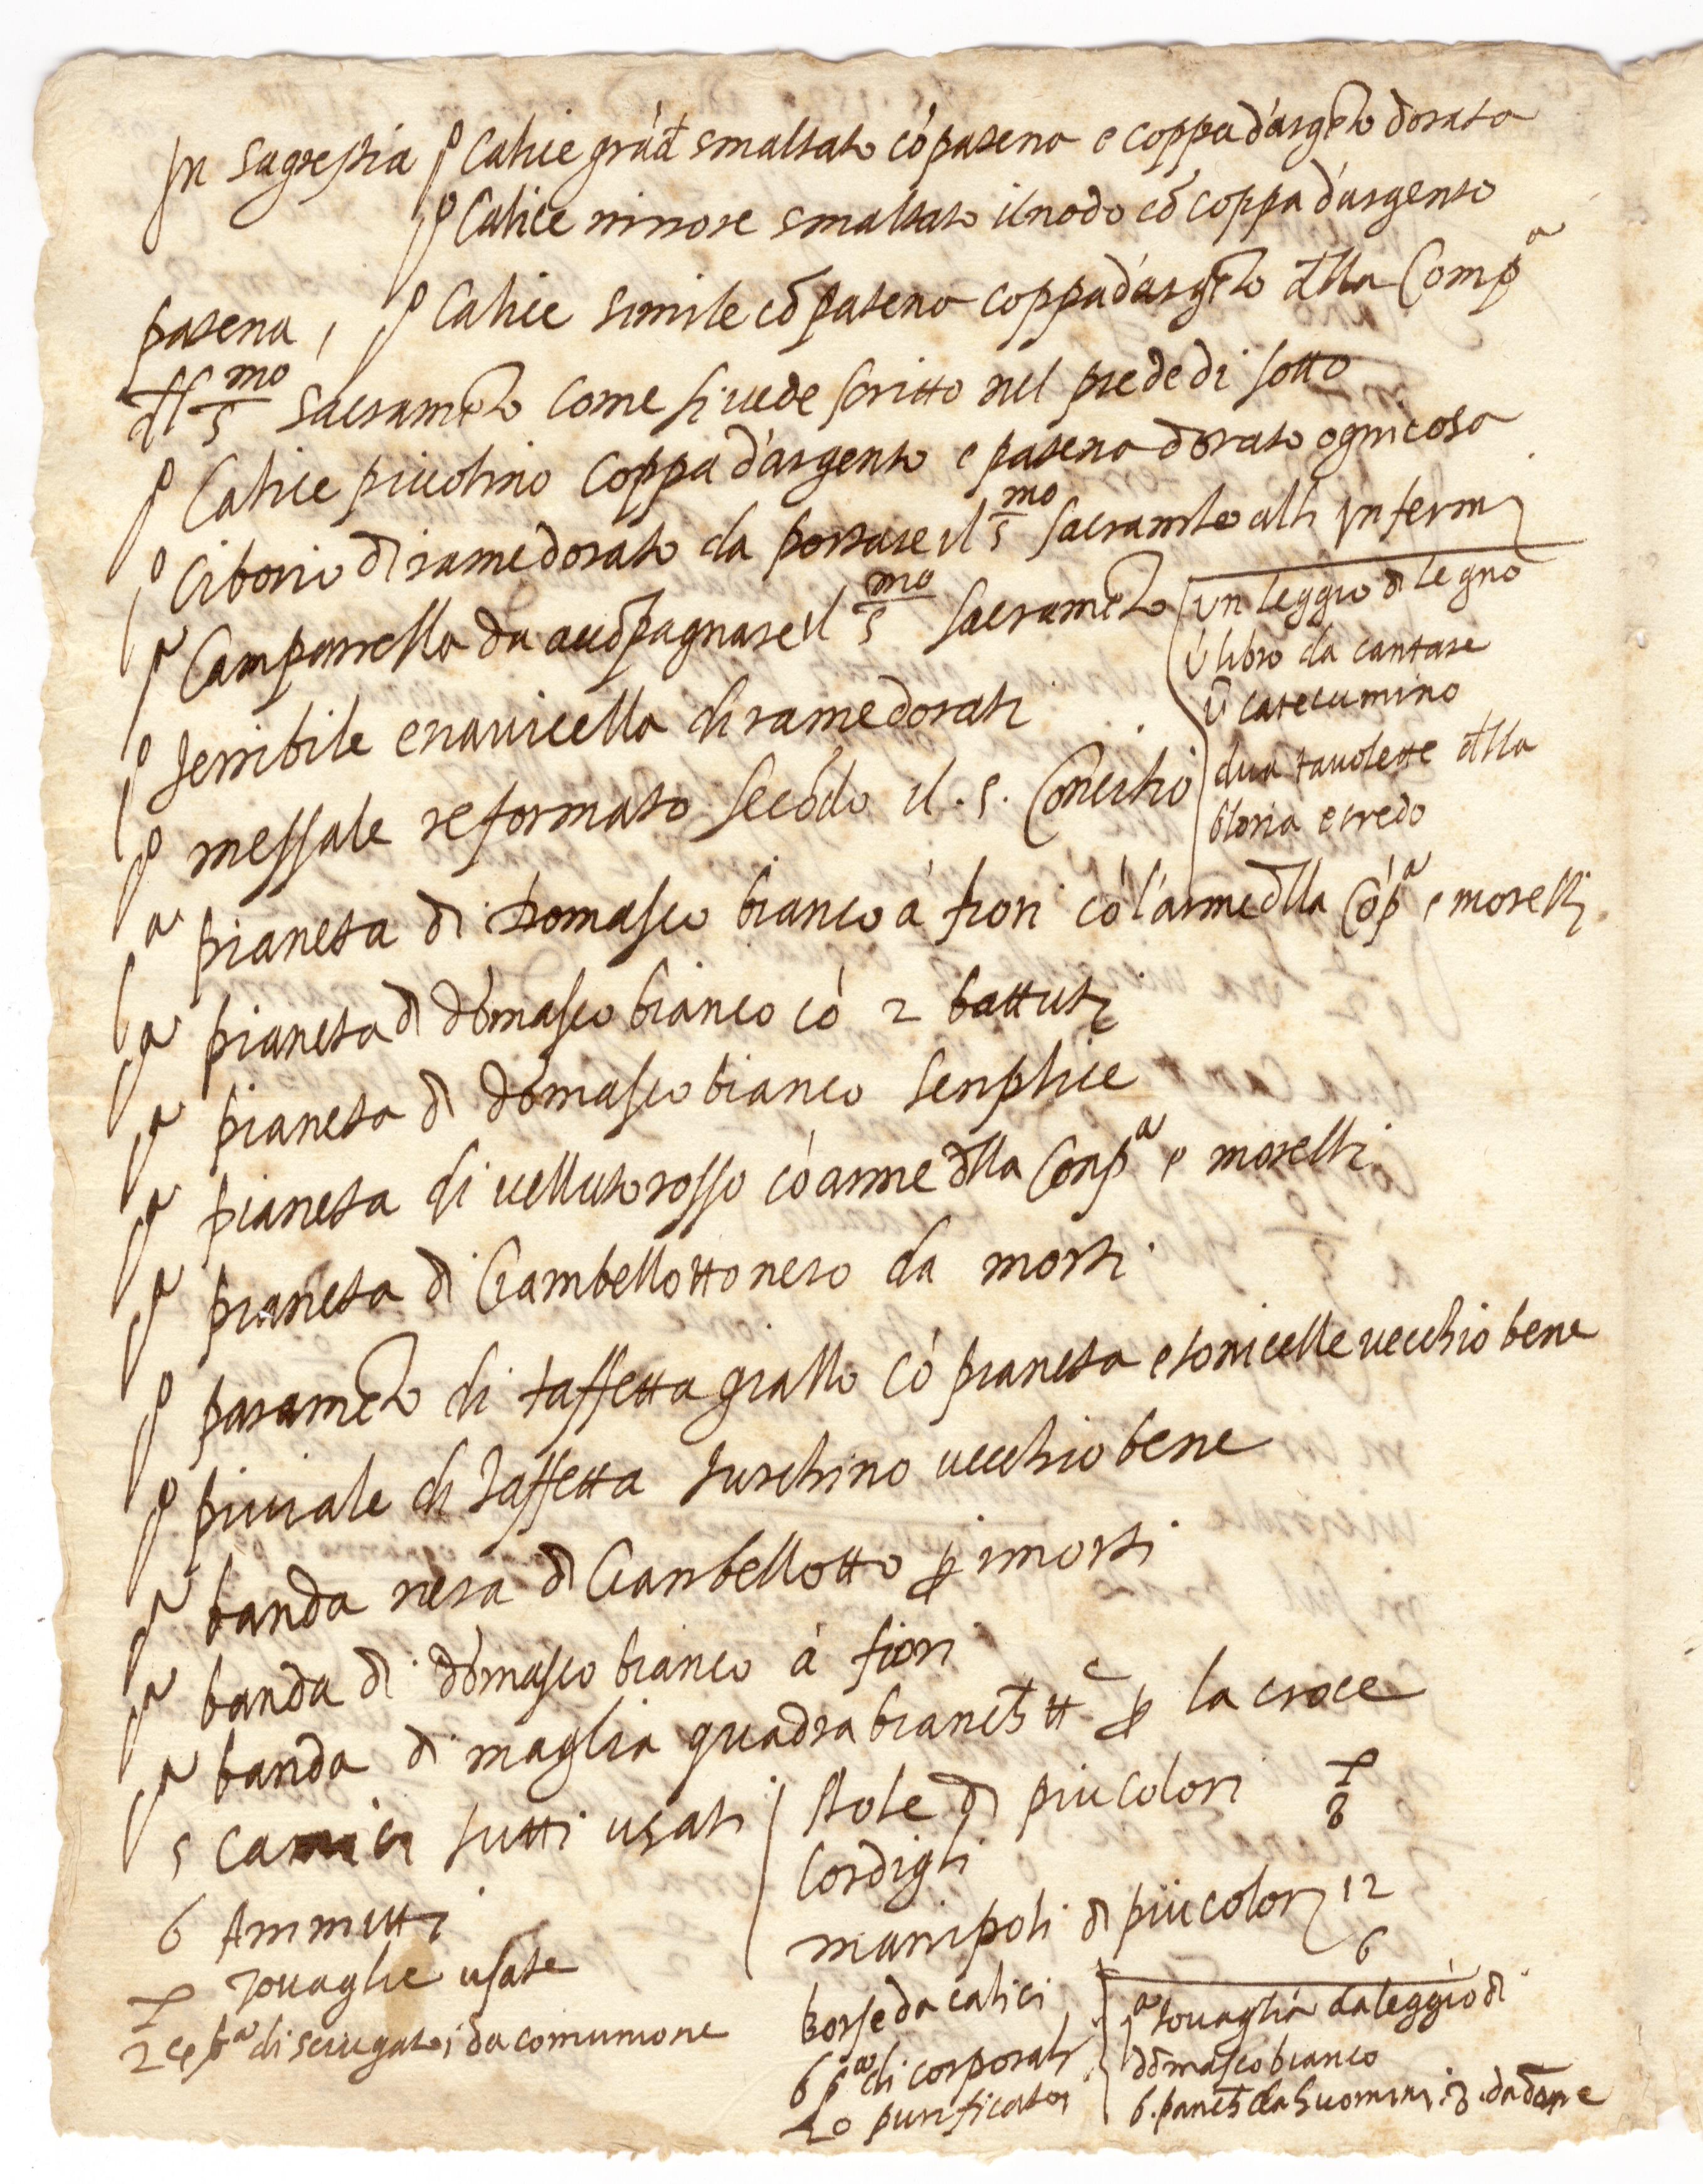 In sagrestia p° Calice grād smaltato cō patena e coppa d'argēto dorata
p° Calice minore smaltato il nodo cō coppa d'argento
patena, p° Calice simile cō patena coppa d'argēto dlla Compa
dl smo Sacramēto come si uede scritto nel piede di sotto
p° Calice piccolino coppa d'argento e patena dorato ogni cosa
p° Ciborio di rame dorato da portare il smo sacramēto alli Infermi
pa Campanella da accōpagnare il smo Sacramēto
un leggio di legno
ū libro da cantare
ū catecumino
dua tauolette dlla
Gloria e credo
p° terribile e nauicella di rame dorati
p° messale reformato secōdo il .s. Concilio
pa pianeta di Domasco bianco à fiori cō l'arme dlla Cōpa e morelli
pa pianeta di domasco bianco cō 2 battuti
pa pianeta di domasco bianco senplice
pa pianeta di uelluto rosso cō arme dlla Conpa e morelli
pa pianeta di Ciambellotto nero da morti
p° paramēto di taffetta giallo cō pianeta e tonicelle uecchio bene
p° piuiale di taffetta turchino uecchio bene
pa banda nera di Cianbellotto p i morti
pa banda di domasco bianco à fiori
pa banda di maglia quadra p la croce
5 camici tutti usati
6 Ammitti
touaglie usate
2 di sciugatoi da comunione
stole di piu colori
Cordigli 8
manipoli di piu colori 12
borse da calici 6
6 pa di corporali
purificatori
pa touaglia da leggio di
domasco bianco
6. da huomini . 8 . da done